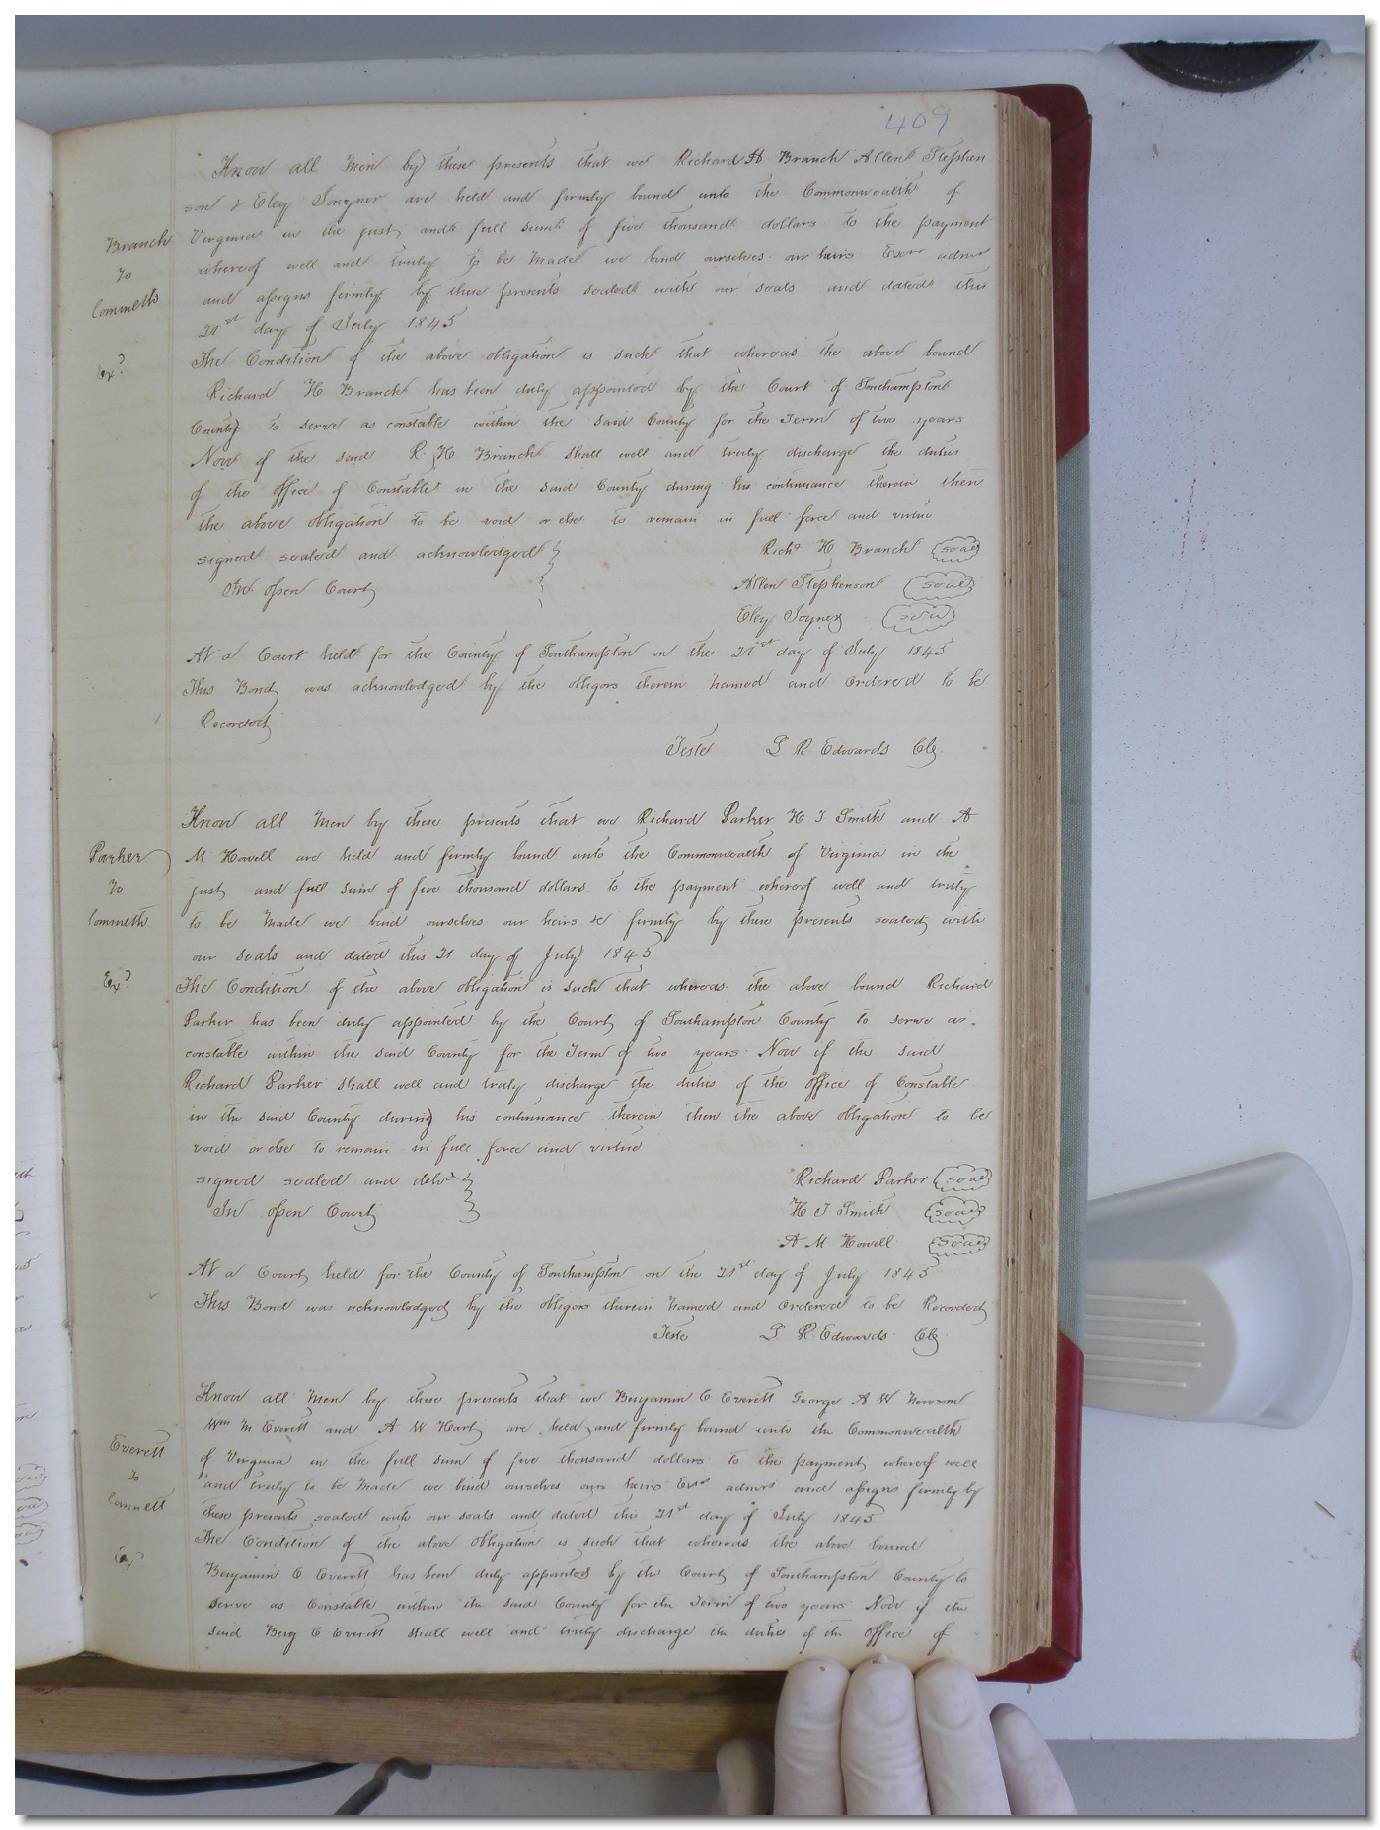 409
Know all Men by these presents that we Richard H Branch Allen Stephen
son & Eley Joyner are held and firmly bound unto the Commonwealth of
Branch
Virginia in the just and full sum of five thousand dollars to the payment
To
whereof well and truly to be Made we bind ourselves our heirs Exors admrs
Commeth
and assigns firmly by these presents sealed with our seals and dated this
21st day of July 1845
Exd
The Condition of the above obligation is such that whereas the above bound
Richard H Branch has been duly appointed by the Court of Southampton
County to serve as constable within the said County for the Term of two years
Now if the said R. H Branch shall well and truly discharge the duties
of the office of Constable in the said County during his continuance therein then
the above obligation to be void or else to remain in full force and virtue
signed sealed and acknowledged
Richd H Branch seal
In open Court
Allen Stephenson seal
Eley Joyner seal
At a Court held for the County of Southampton on the 21st day of July 1845
This Bond was acknowledged by the obligors therein Named and Ordered to be
Recorded
Teste L R Edwards Clk
Know all Men by these presents that we Richard Parker H J Smith and A
Parker
M Howell are held and firmly bound unto the Commonwealth of Virginia in the
To
just and full sum of five thousand dollars to the payment whereof well and truly
Commeth
to be Made we bind ourselves our heirs &c firmly by these presents sealed with
our seals and dated this 21 day of July 1845
Exd
The Condition of the above obligation is such that whereas the above bound Richard
Parker has been duly appointed by the Court of Southampton County to serve as
constable within the said County for the Term of two years Now if the said
Richard Parker shall well and truly discharge the duties of the office of Constable
in the said County during his continuance therein then the above obligation to be
void or else to remain in full force and virtue
signed sealed and delvd
Richard Parker seal
In open Court
H J Smith seal
A M Howell seal
At a Court held for the County of Southampton on the 21st day of July 1845
This Bond was acknowledged by the obligors therein Named and Ordered to be Recorded
Teste L R Edwards Clk
Know all Men by these presents that we Benjamin C Everett George A W Newsom
Wm M Everett and A W Hart are held and firmly bound unto the Commonwealth
Everett
of Virginia in the full sum of five thousand dollars to the payment whereof well
To
and truly to be Made we bind ourselves our heirs Exrs admrs and assigns firmly by
these presents sealed with our seals and dated this 21st day of July 1845
The Condition of the above obligation is such that whereas the above bound
Benjamin C Everett has been duly appointed by the Court of Southampton County to
serve as Constable within the said County for the Term of two years Now if the
said Benj C Everett shall well and truly discharge the duties of the office of